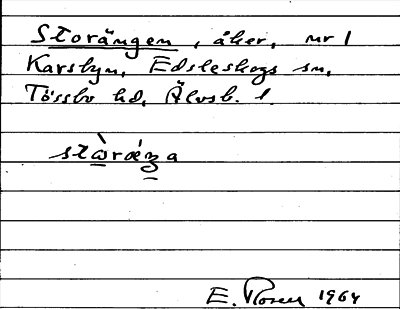 Storängen, åker, nr 1
Karsbyn, Edsleskogs sn,
Tössbo hd, Älvsb. l.
stɷ̀rǽŋa
E. Rosen 1964